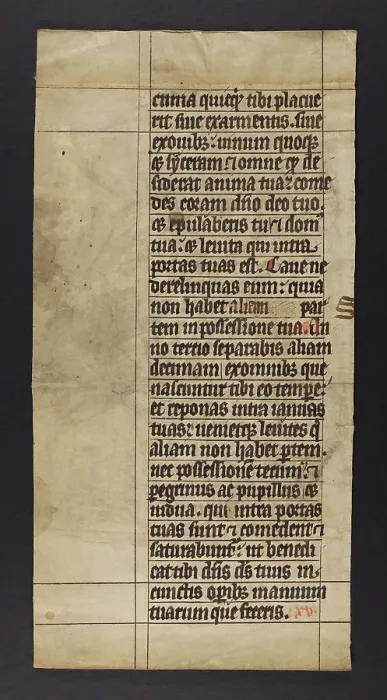 cunia quicq; tibi placue
rit siue ex armentis. siue
ex ouib;. uinum quoq;
& syceram ⁊ omne qd de
siderat anima tua: come
des coram dño deo tuo.
& epulaberis tu ⁊ dom
tua: & leuita qui intra
portas tuas est. Caue ne
derelinquas eum: quia
non habet aliam par
tem in possessione tua. An
S
no tercio separabis aliam
decimam ex omnib; que
nascuntur tibi eo tempe:
et repones intra ianuas
tuas: uenietq; leuites q
aliam non habet ptem.
nec possessionem tecum: ⁊
pegrinus ac pupillus &
uidua. qui intra portas
tuas sunt ⁊ comedent ⁊
saturabunt: ut benedi
cat tibi dñs ds tuus in
cunctis opib; manuum
tuarum que feceris. xv.